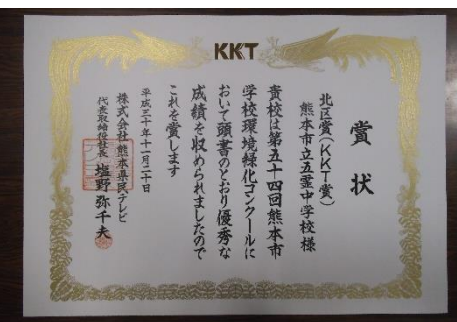 KKT
賞状
北区賞(KKT賞)
熊本市立五霊中学校様
貴校は第五十四回熊本市
学校環境緑化コンクールに
おいて頭書のとおり優秀な
成績を収められましたので
これを賞します
平成三十年十一月二十日
株式会社熊本県民テレビ
代表取締役社長 塩野弥千夫